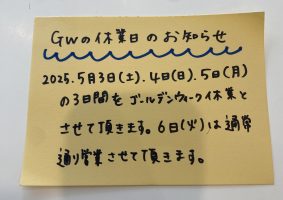 GWの休業日のお知らせ
2025.5月3日(土).4日(日).5日(月)
の3日間をゴールデンウィーク休業と
させて頂きます。6日(火)は通常
通り営業させて頂きます。